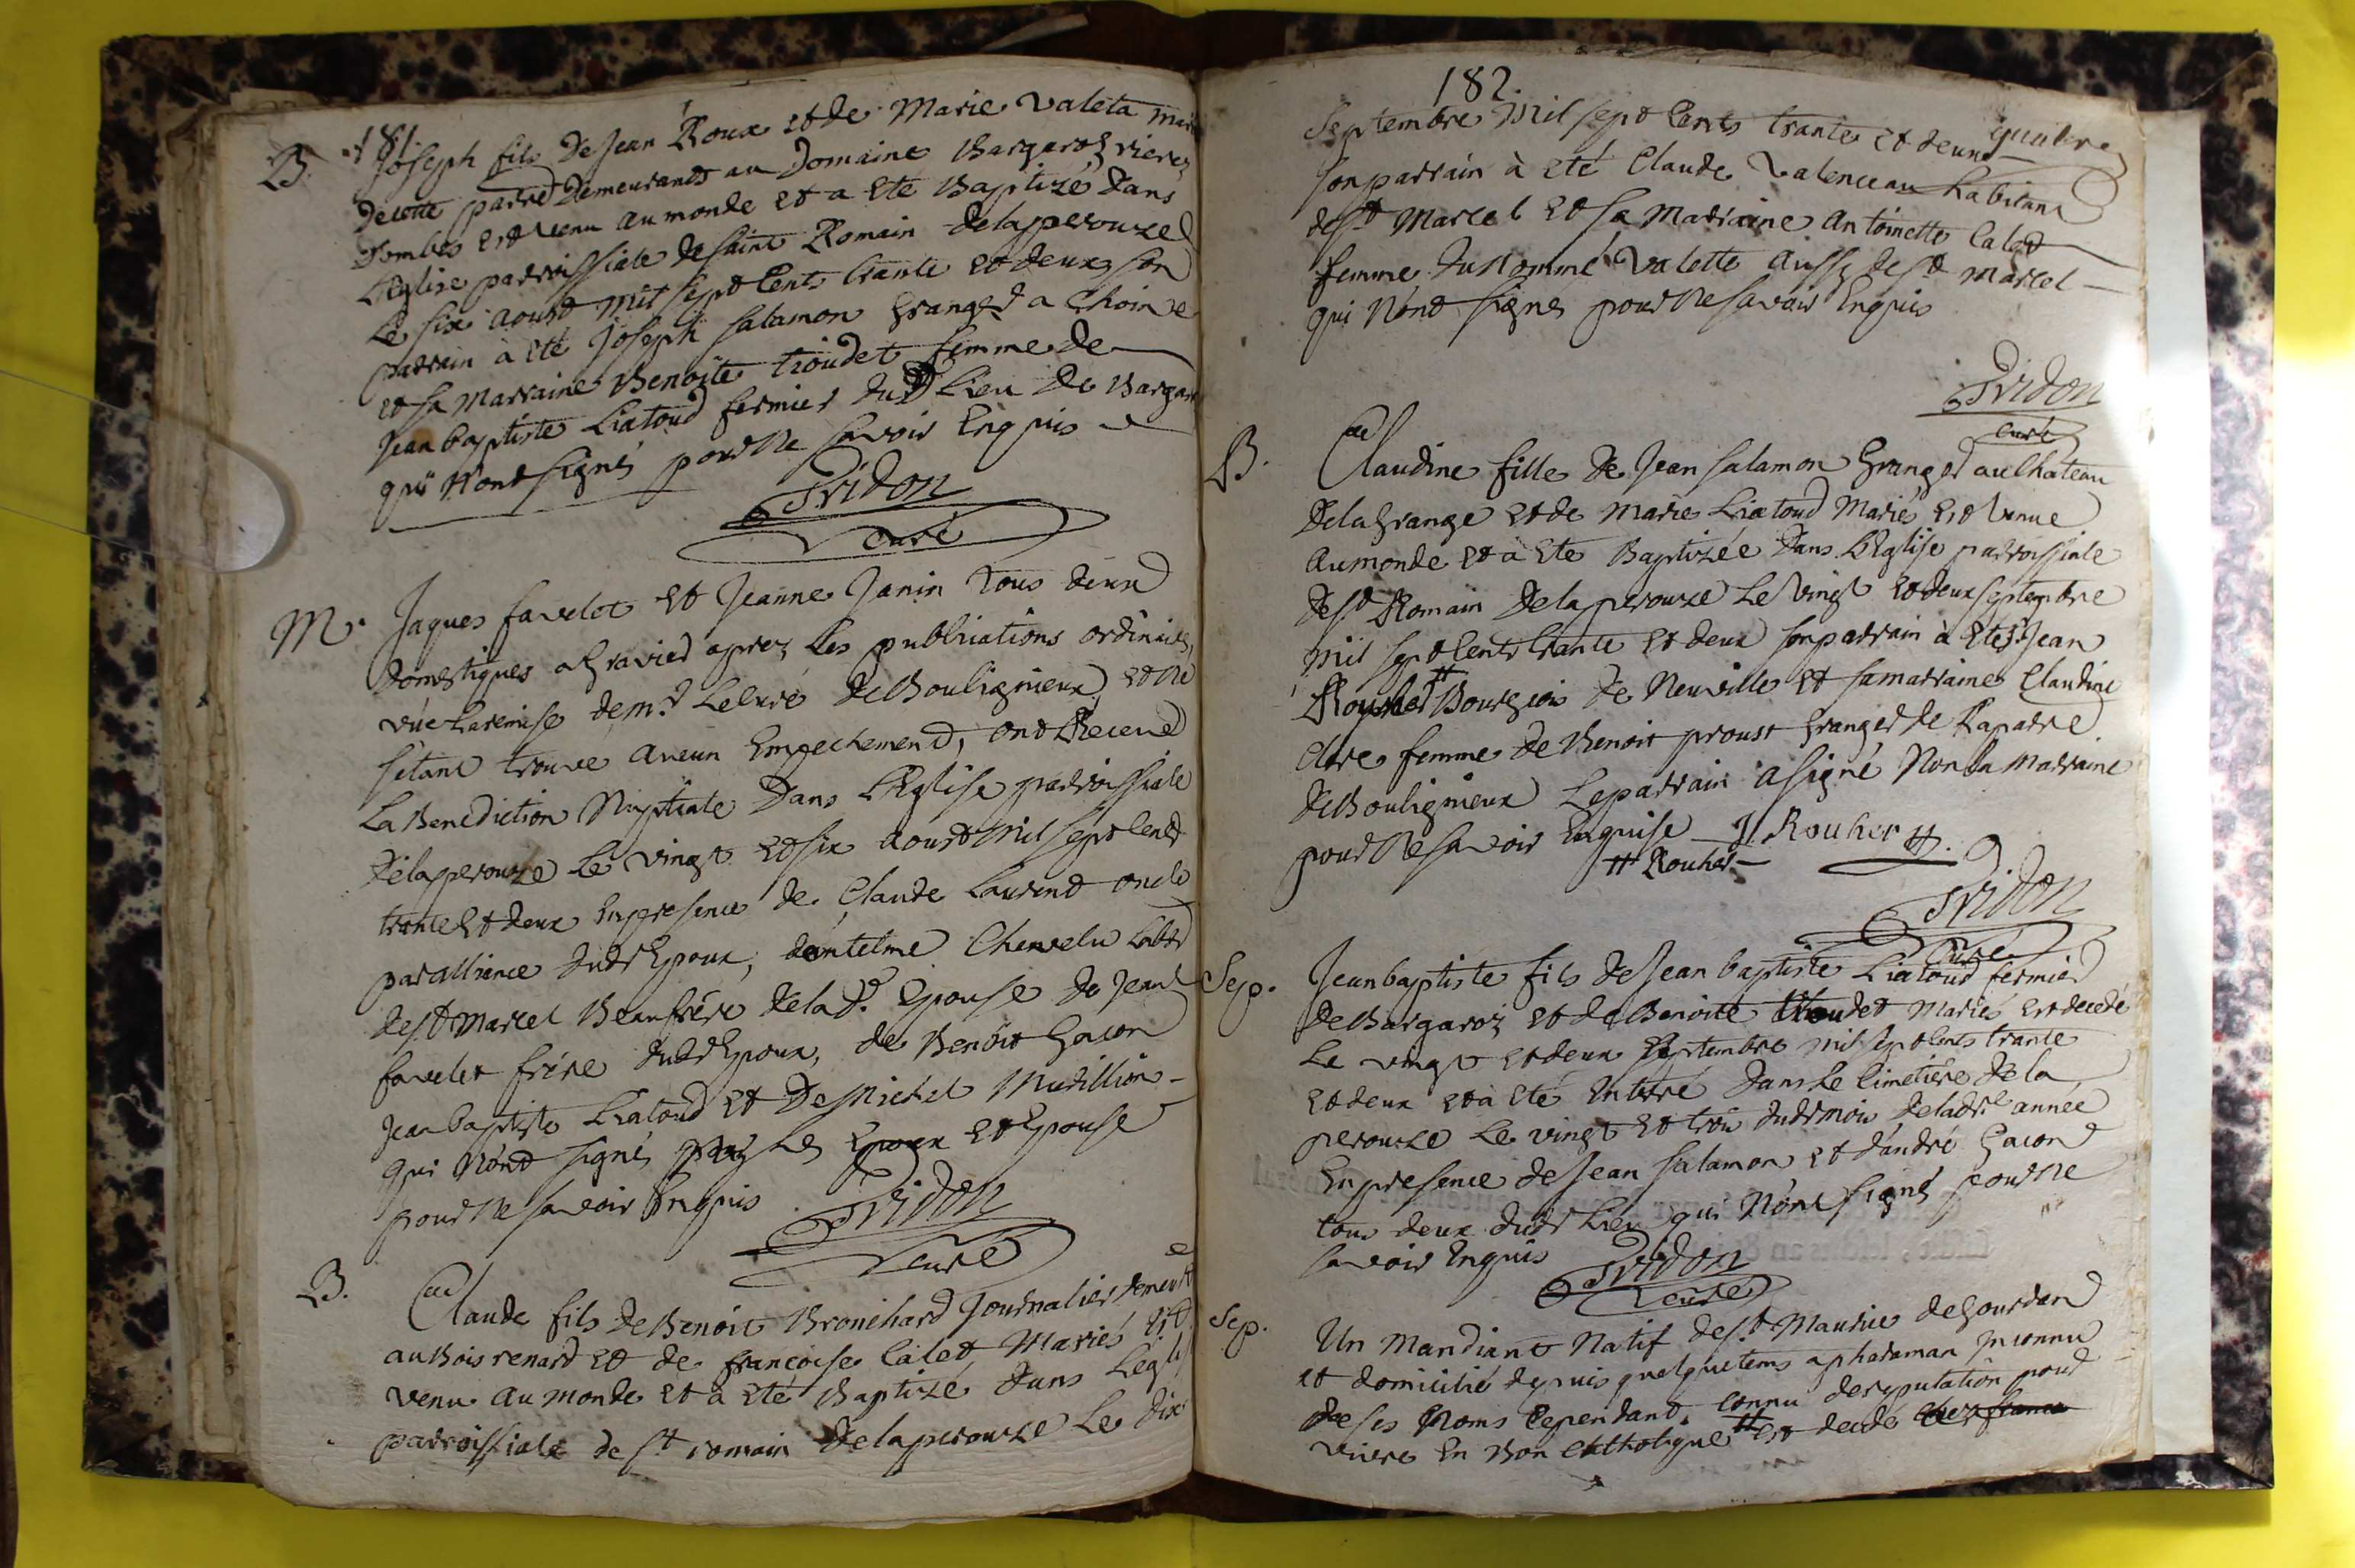 181.
B. Joseph fils De Jean Roux et de Marie Valeta mari
De cette parre Demeurants au Domaine Bargaroz riere
Dombes est venu au monde et a ete Baptizé Dans
L'Eglise parroissiale de saint Romain delaperouze
Le six aoust mil sept cents trante et deux son
parrain à eté Joseph salamon granger a
et sa Marraine Benoite tioudet femme de
Jean baptiste Liatoud fermier dud Lieu De Bargar
qui n'ont signés pour ne savoir Enquis
Tridon
curé
M. Jaques favelot et Jeanne Janin tous deux
Domestiques a Gravier aprez les publications ordinaires,
vüe La remise de mr. Le Curé de Bouligneux, et ne
s'etant trouvé aucun Empechement, ont Receue
La Benediction Nuptiale Dans L'Eglise parroissiale
Delaperouze Le vingt et six aoust mil sept cent
trante et deux En presence de Claude Laurent oncle
par alliance dudt Epoux, dantelme Chervelu Labr
de st Marcel Beaufrére de lad. Epouse de Jean
favelot frére dudt Epoux, de Benoit Gacon
Jean baptiste Liatoud et De Michel Mudillion -
qui n'ont signés Les Epoux et Epouse
pour ne savoir Enquis
Tridon
curé
B. Claude fils de Benoit Bronchard Journalier demeurt
au Bois renard et de francoise Calet Mariés est
venu au monde et a eté Baptizé dans L'égl
parroissiale de st romain Delaperouze Le dix
182.
quatre
Septembre Mil sept cents trante et deux
son parrain à eté Claude Valenceau habitant
de st Marcel et sa Marraine Antoinette Calet
femme du nommé Valette aussy de st Marcel
qui n'ont signés pour ne savoir Enquis
Tridon
curé
B. Claudine fille de Jean salamon Granger au Chateau
De la Grange et de Marie Liatoud Mariés est venue
au monde et à ete Baptizée Dans L'Eglise parroissiale
de st Romain Delaperouze Le vingt et deux septembre
mil sept cents trante et deux son parrain à eté sr. Jean
Bourgeois de Neuville et sa marraine Claudine
Clere femme de Benoit proust Granger de
de Bouligneux Le parrain a signé Non la marraine
pour ne savoir Enquise J. Rouher #.
# Rouher
Tridon
Curé
Sep. Jean baptiste fils de Jean baptiste Liatoud fermier
de Bargaroz et de Benoite tioudet Mariés est decedé
Le vingt et deux septembre mil sept cents trante
et deux et à eté Enterré Dans Le Cimetiére de la
perouze Le vingt et trois dudt mois de ladte année
En presence de Jean Salamon et dandré Gacon
tous deux dudt Lieu qui n'ont signé pour ne
savoir Enquis Tridon
Curé
Sep. Un Mandiant Natif de st. Maurice de Gourdan
et domicilié depuis quelque tems apharaman Inconnu
de ses Noms Cependant, connu de reputation pour
vivre En Bon Catholique # est decedé